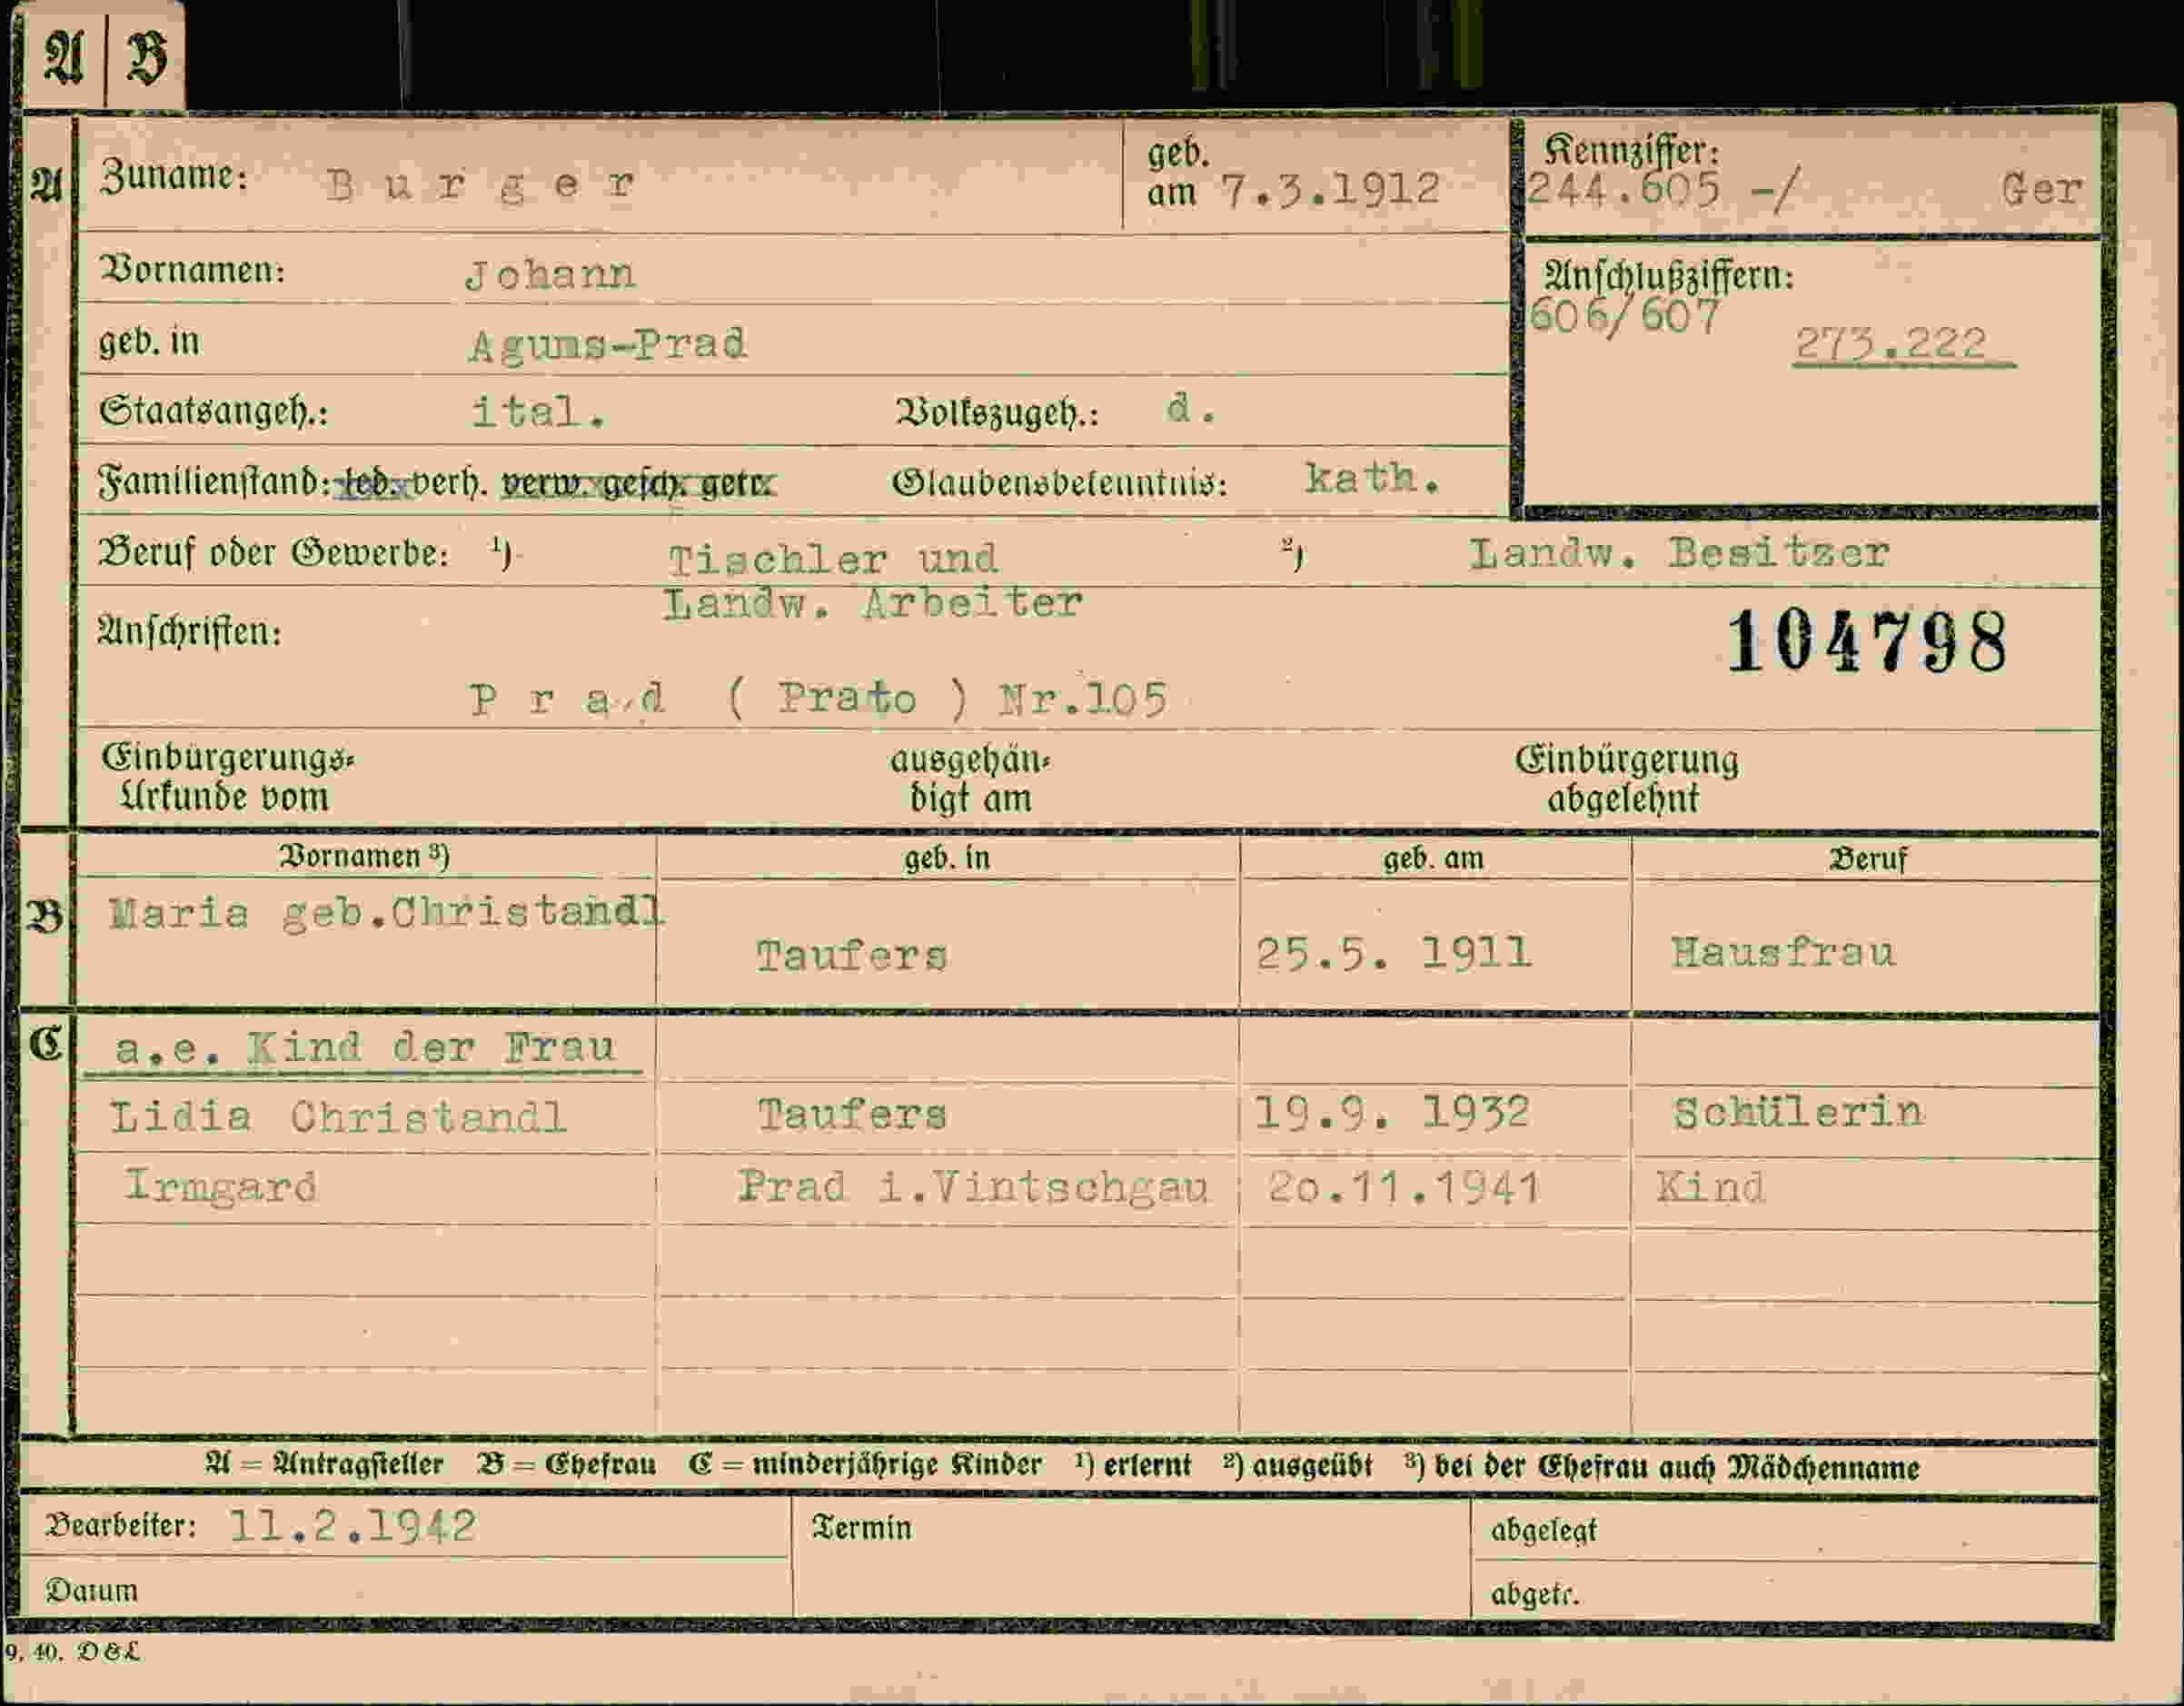 A B
A Zuname: B u r g e r geb. am 7.3.1912 Kennziffer: 244.605 -/ Ger
Vornamen: Johann Anschlußziffern: 606/607
geb. in Agums-Prad 273.222
Staatsangeh.: ital. Volkszugeh.: d.
Familienstand: led. verh. verw. gesch. getr. Glaubensbekenntnis: kath.
Beruf oder Gewerbe: ¹) Tischler und ²) Landw. Besitzer
Landw. Arbeiter
Anschriften: 104798
P r a d ( Prato ) Nr.105
Einbürgerungs- ausgehän- Einbürgerung
Urkunde vom digt am abgelehnt
Vornamen ³) geb. in geb. am Beruf
B Maria geb.Christandl
Taufers 25.5. 1911 Hausfrau
C a.e. Kind der Frau
Lidia Christandl Taufers 19.9. 1932 Schülerin
Irmgard Prad i.Vintschgau 20.11.1941 Kind
A = Antragsteller B = Ehefrau C = minderjährige Kinder ¹) erlernt ²) ausgeübt ³) bei der Ehefrau auch Mädchenname
Bearbeiter: 11.2.1942 Termin abgelegt
Datum abgetr.
9. 40. D&L